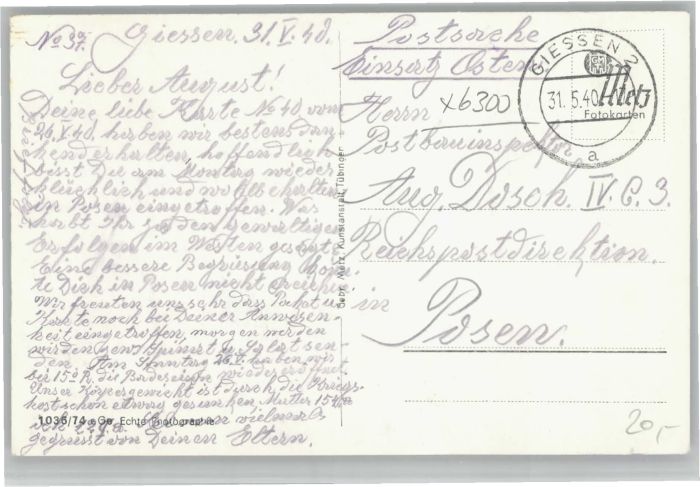 No 37.
Giessen. 31. V. 40.
Lieber August!
Deine liebe Karte No 40 vom
26. V. 40. haben wir bestens dan-
kend erhalten, hoffendlich
bisst Du am Montag wieder
glücklich und wohlbehalten
in Posen eingetroffen. Was
habt Ihr zu den gewaltigen
Erfolgen im Westen gesagt.
Eine bessere Begrüsung konn-
te Dich in Posen nicht
Wir freuten uns sehr dass Paket u.
Karte noch bei Deiner Anwesen-
heit eingetroffen, morgen werden
wir den Spinat u. Salat sen-
den. Am Sonntag 26. V. haben wir
bei 15° R. die Badesaison wieder eröffnet.
Unser Körpergewicht ist durch die Kriegs-
kost schon etwas gesunken Mutter 154
ich vielmals
gegrüsst von Deinen Eltern.
1036/74 Echte Photographie
Gebr. Metz, Kunstanstalt, Tübingen
Postsache
Einsatz Osten
x6300
GIESSEN 2
31.5.40
a
Metz
Fotokarten
Herrn
Postbauinspektor
Aug. Dosch. IV. C. 3.
Reichspostdirektion.
in
Posen.
20,-